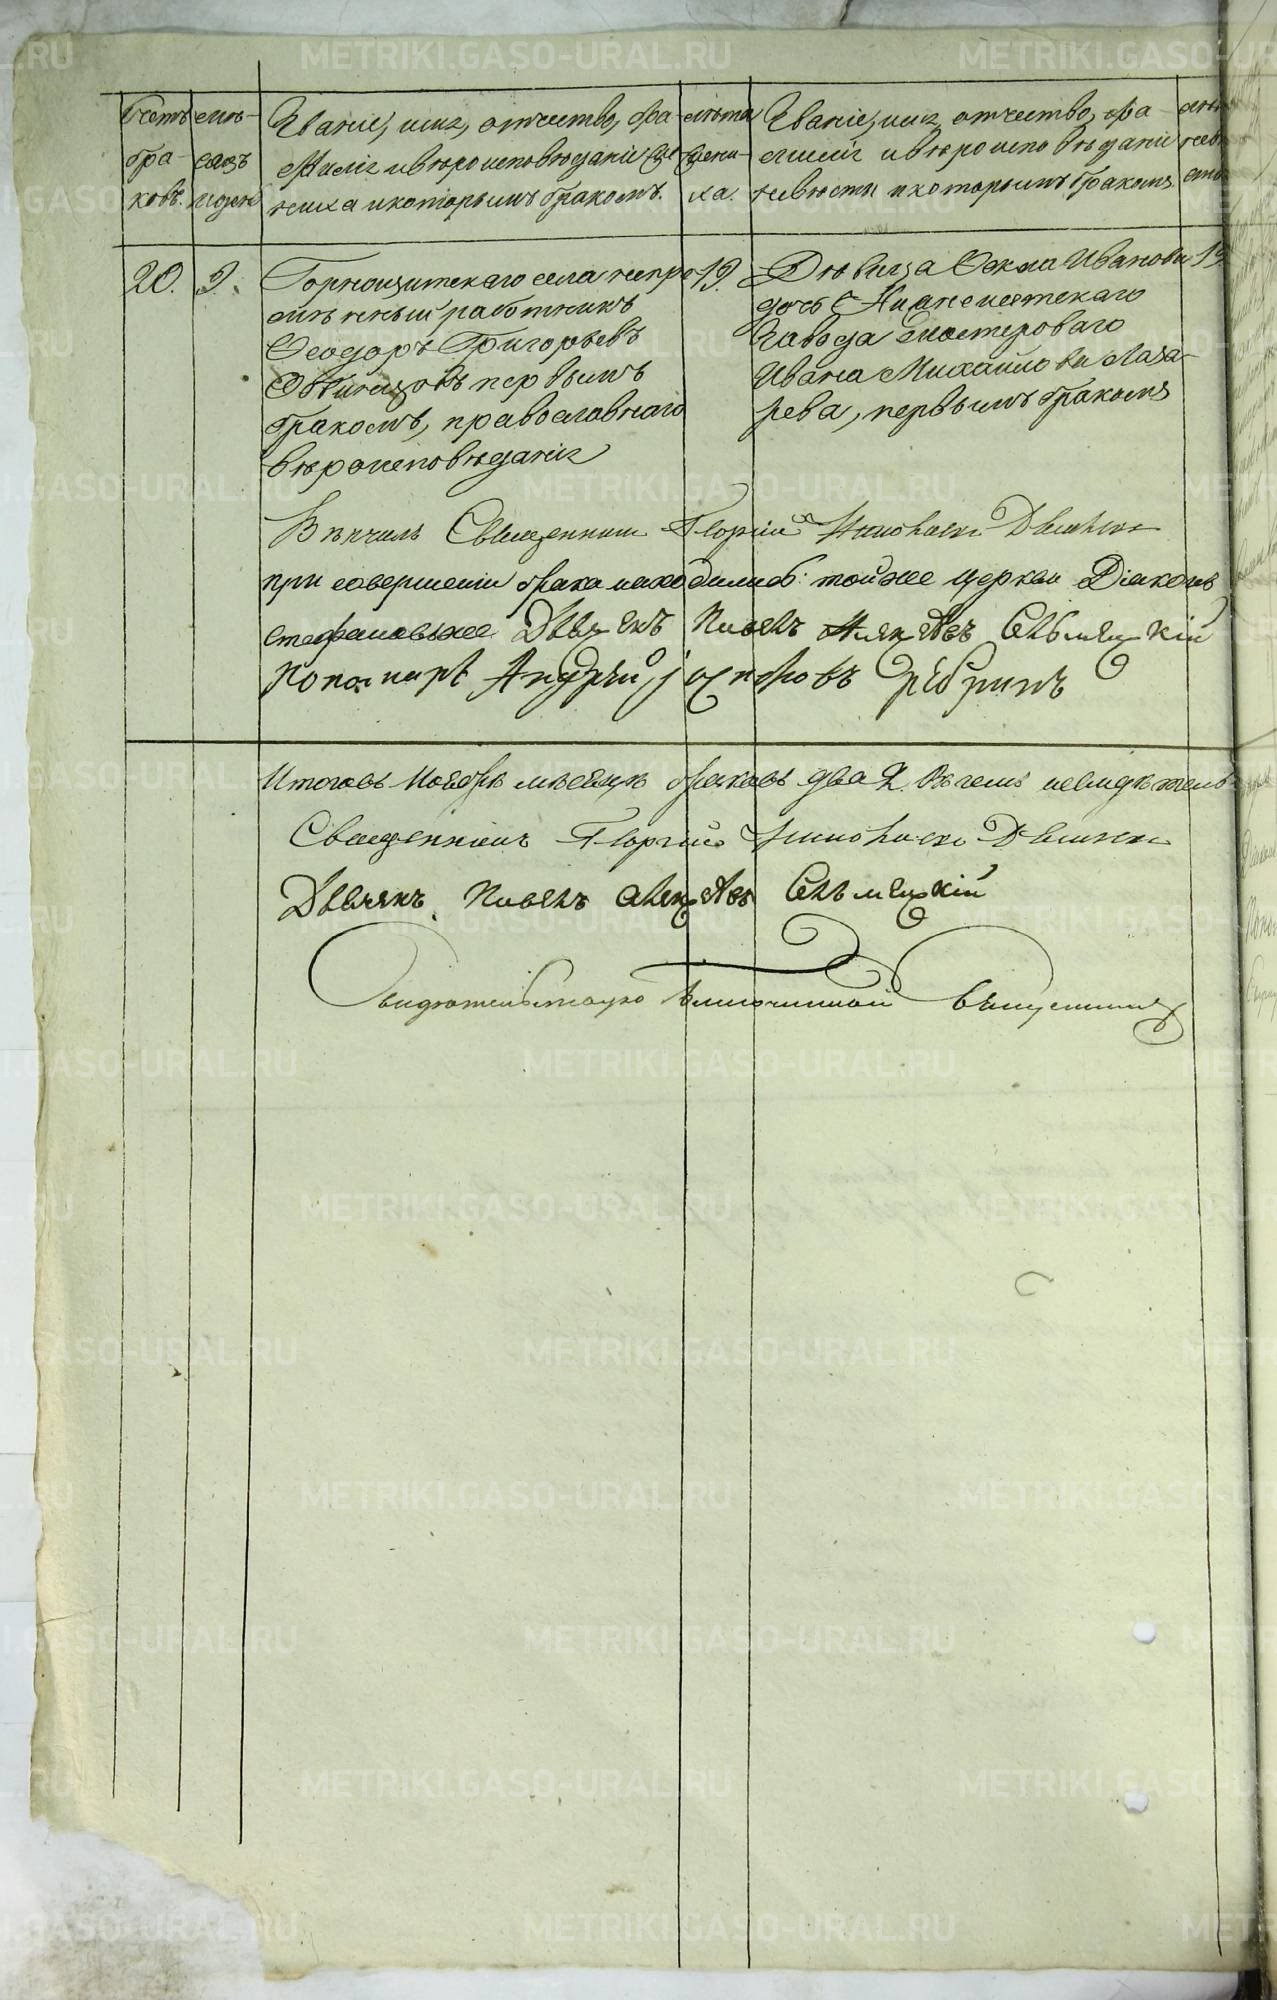 Счетъ
бра-
ковъ.
мѣ-
сяцъ
и день
Званіе, имя, отчество, фа-
милія и вѣроисповѣданіе же-
ниха и которымъ бракомъ.
лѣта
жени-
ха.
Званіе, имя, отчество, фа-
милія и вѣроисповѣданіе
невѣсты и которымъ бракомъ
20.
9.
Горнощитскаго села непре-
мѣнный работникъ
Ѳеодоръ Григорьевъ
Овчинцовъ первымъ
бракомъ, православнаго
вѣроисповѣданія
19.
Дѣвица Ѳекла Иванова
дочь Нижнеисетскаго
Завода мастероваго
Ивана Михайлова Лаза-
рева, первымъ бракомъ
19
Вѣнчалъ Священникъ Георгій
при совершеніи брака находились: той же церкви Діаконъ
Дьячекъ Павелъ Алексѣевъ Сельменскій
Пономарь Андрей Ребринъ
Итого въ Ноябрѣ мѣсяцѣ браковъ два 2. Въ чемъ и свидѣтель-
Священникъ Георгій
Дьячекъ Павелъ Алексѣевъ Сельменскій
Свидѣтельствую Благочинной
METRIKI.GASO-URAL.RU